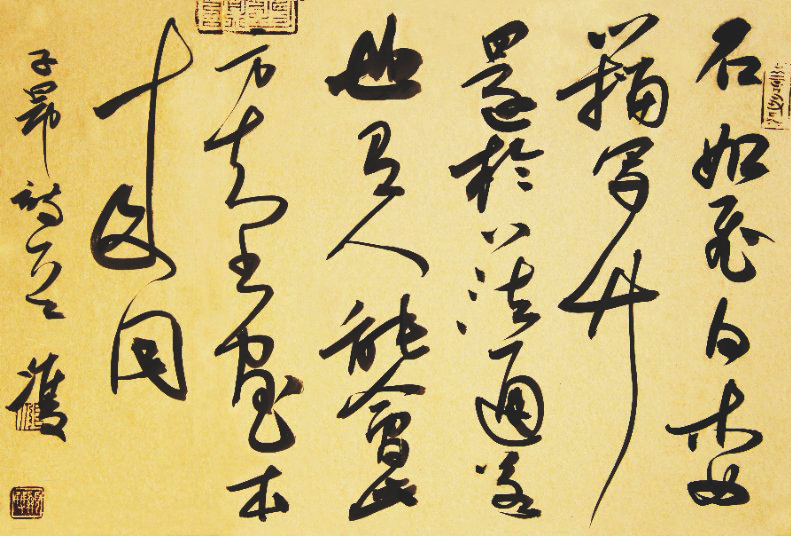 石如飛白木如
籀写竹
還於八法通若
也有人能會此
方知書畫本
來同
子昂詩